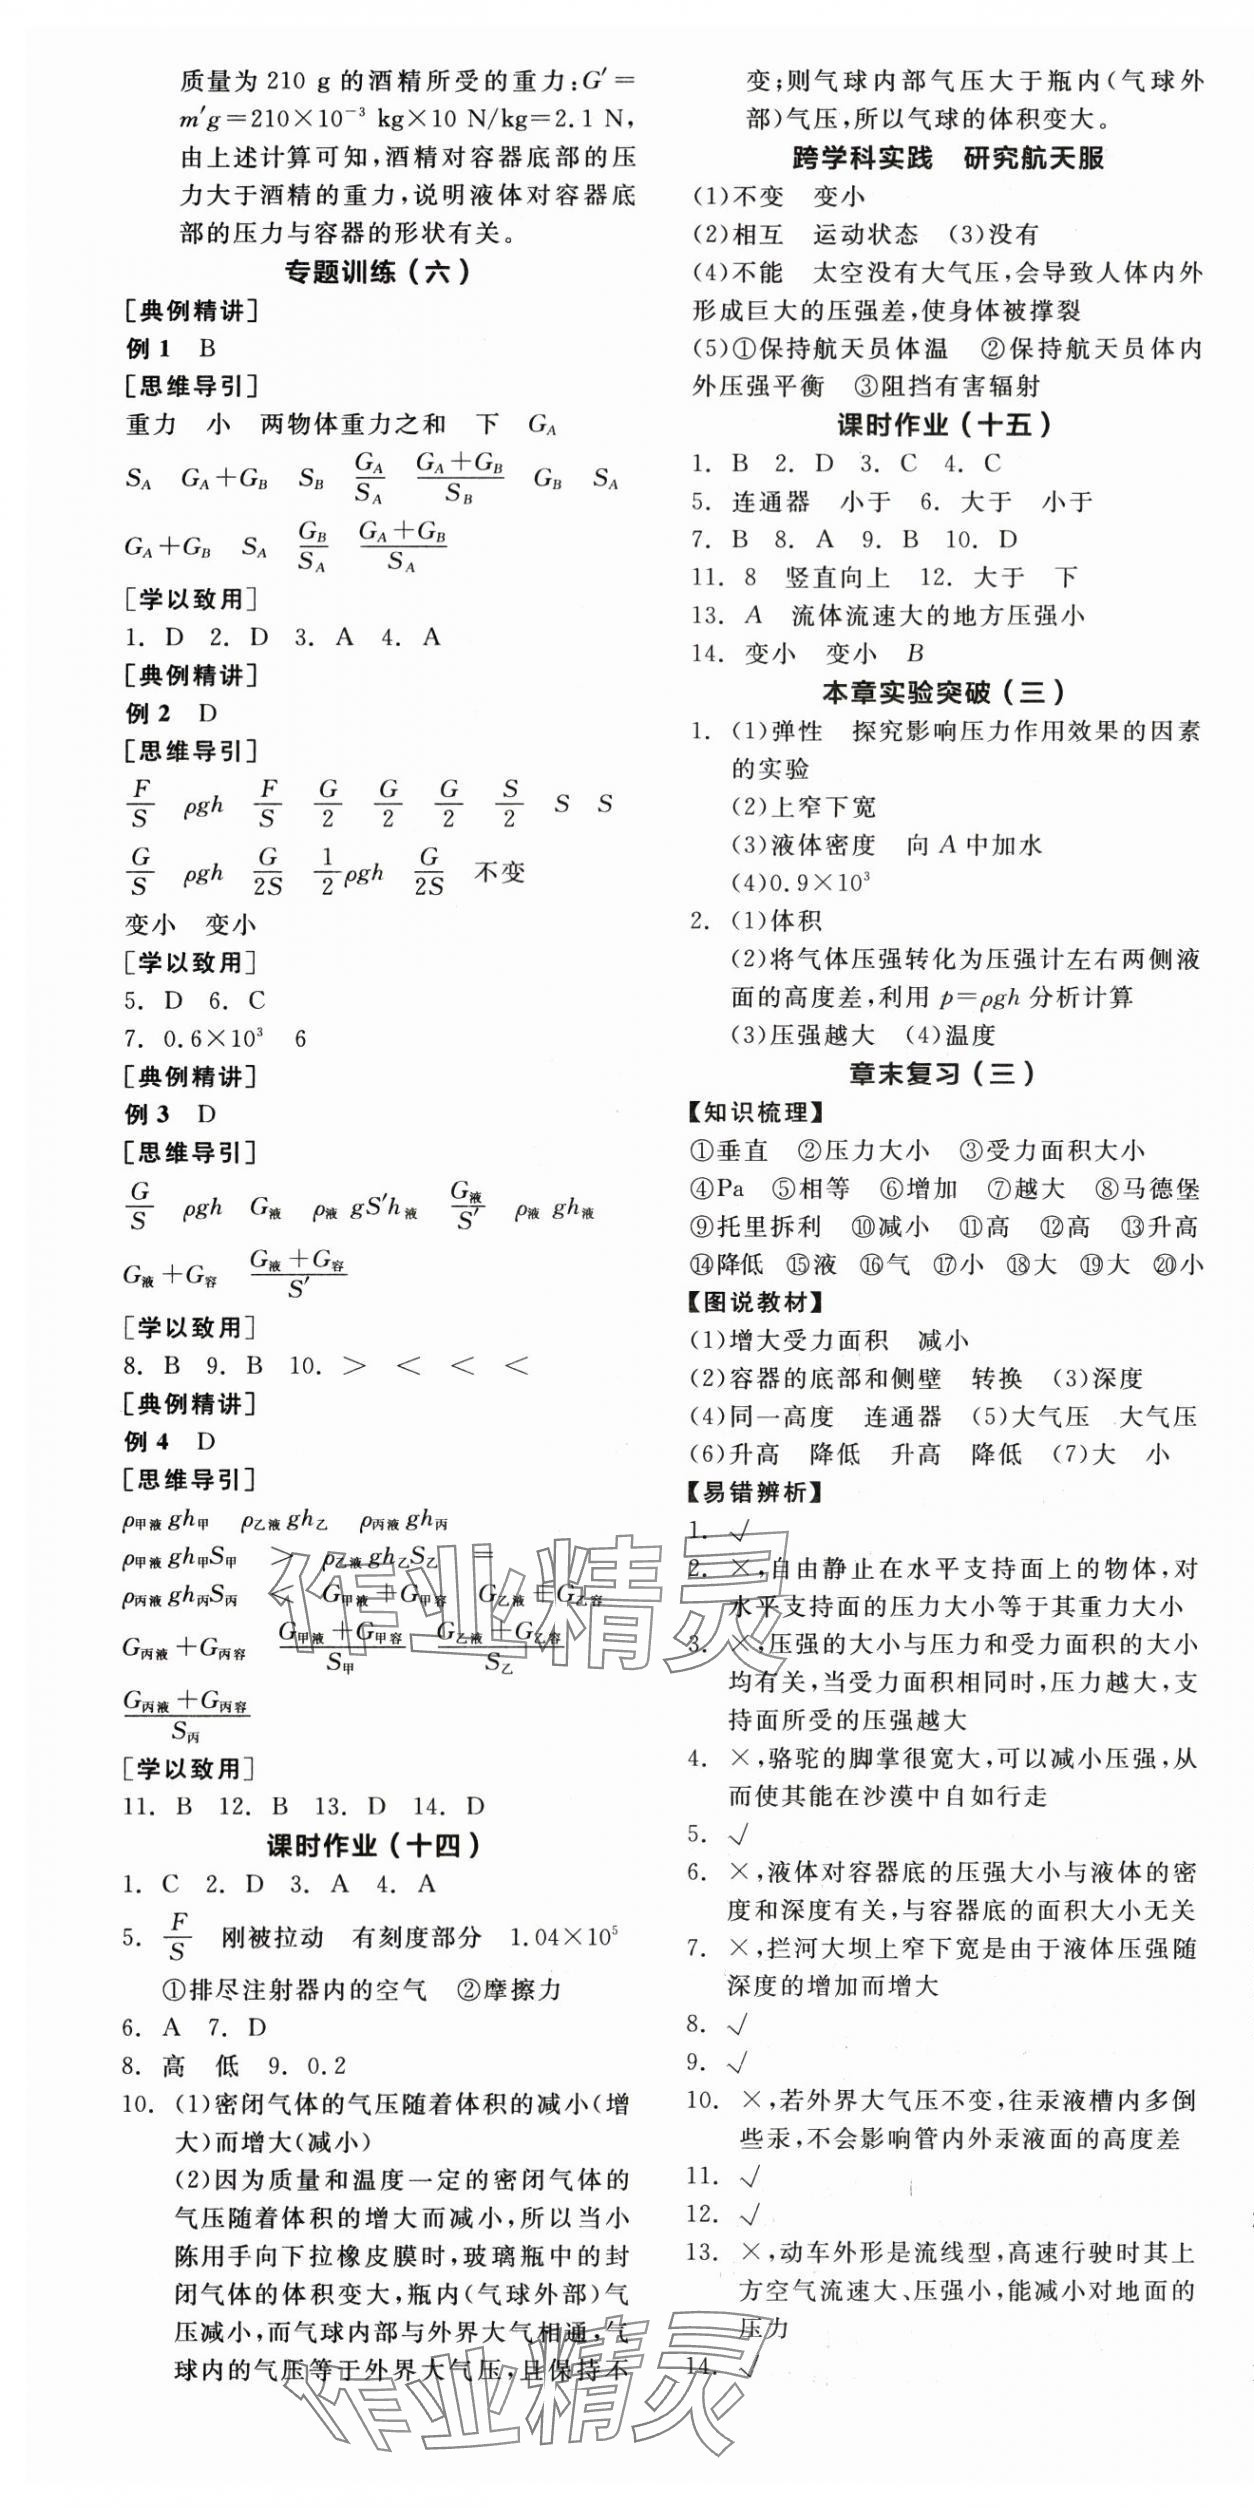 质量为 210 g 的酒精所受的重力:G′=
m′g=210×10⁻³ kg×10 N/kg=2.1 N,
由上述计算可知,酒精对容器底部的压
力大于酒精的重力,说明液体对容器底
部的压力与容器的形状有关。
专题训练(六)
[典例精讲]
例1 B
[思维导引]
重力 小 两物体重力之和 下 G_A
S_A G_A+G_B S_B G_A/S_A (G_A+G_B)/S_B G_B S_A
G_A+G_B S_A G_B/S_A (G_A+G_B)/S_A
[学以致用]
1. D 2. D 3. A 4. A
[典例精讲]
例2 D
[思维导引]
F/S ρgh F/S G/2 G/2 G/2 S/2 S S
G/S ρgh G/2S 1/2 ρgh G/2S 不变
变小 变小
[学以致用]
5. D 6. C
7. 0.6×10³ 6
[典例精讲]
例3 D
[思维导引]
G/S ρgh G液 ρ液 gS′h液 G液/S′ ρ液 gh液
G液+G容 (G液+G容)/S′
[学以致用]
8. B 9. B 10. > < < <
[典例精讲]
例4 D
[思维导引]
ρ甲液 gh甲 ρ乙液 gh乙 ρ丙液 gh丙
ρ甲液 gh甲S甲 > ρ乙液 gh乙S乙 =
ρ丙液 gh丙S丙 < G甲液+G甲容 G乙液+G乙容
G丙液+G丙容 (G甲液+G甲容)/S甲 (G乙液+G乙容)/S乙
(G丙液+G丙容)/S丙
[学以致用]
11. B 12. B 13. D 14. D
课时作业(十四)
1. C 2. D 3. A 4. A
5. F/S 刚被拉动 有刻度部分 1.04×10⁵
①排尽注射器内的空气 ②摩擦力
6. A 7. D
8. 高 低 9. 0.2
10. (1)密闭气体的气压随着体积的减小(增
大)而增大(减小)
(2)因为质量和温度一定的密闭气体的
气压随着体积的增大而减小,所以当小
陈用手向下拉橡皮膜时,玻璃瓶中的封
闭气体的体积变大,瓶内(气球外部)气
压减小,而气球内部与外界大气相通,气
球内的气压等于外界大气压,且保持不
变;则气球内部气压大于瓶内(气球外
部)气压,所以气球的体积变大。
跨学科实践 研究航天服
(1)不变 变小
(2)相互 运动状态 (3)没有
(4)不能 太空没有大气压,会导致人体内外
形成巨大的压强差,使身体被撑裂
(5)①保持航天员体温 ②保持航天员体内
外压强平衡 ③阻挡有害辐射
课时作业(十五)
1. B 2. D 3. C 4. C
5. 连通器 小于 6. 大于 小于
7. B 8. A 9. B 10. D
11. 8 竖直向上 12. 大于 下
13. A 流体流速大的地方压强小
14. 变小 变小 B
本章实验突破(三)
1. (1)弹性 探究影响压力作用效果的因素
的实验
(2)上窄下宽
(3)液体密度 向 A 中加水
(4)0.9×10³
2. (1)体积
(2)将气体压强转化为压强计左右两侧液
面的高度差,利用 p=ρgh 分析计算
(3)压强越大 (4)温度
章末复习(三)
【知识梳理】
①垂直 ②压力大小 ③受力面积大小
④Pa ⑤相等 ⑥增加 ⑦越大 ⑧马德堡
⑨托里拆利 ⑩减小 ⑪高 ⑫高 ⑬升高
⑭降低 ⑮液 ⑯气 ⑰小 ⑱大 ⑲大 ⑳小
【图说教材】
(1)增大受力面积 减小
(2)容器的底部和侧壁 转换 (3)深度
(4)同一高度 连通器 (5)大气压 大气压
(6)升高 降低 升高 降低 (7)大 小
【易错辨析】
1. √
2. ×,自由静止在水平支持面上的物体,对
水平支持面的压力大小等于其重力大小
3. ×,压强的大小与压力和受力面积的大小
均有关,当受力面积相同时,压力越大,支
持面所受的压强越大
4. ×,骆驼的脚掌很宽大,可以减小压强,从
而使其能在沙漠中自如行走
5. √
6. ×,液体对容器底的压强大小与液体的密
度和深度有关,与容器底的面积大小无关
7. ×,拦河大坝上窄下宽是由于液体压强随
深度的增加而增大
8. √
9. √
10. ×,若外界大气压不变,往汞液槽内多倒
些汞,不会影响管内外汞液面的高度差
11. √
12. √
13. ×,动车外形是流线型,高速行驶时其上
方空气流速大、压强小,能减小对地面的
压力
14. √
作业精灵
作业精灵